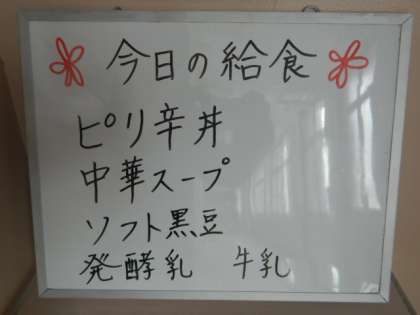 今日の給食
ピリ辛丼
中華スープ
ソフト黒豆
発酵乳 牛乳